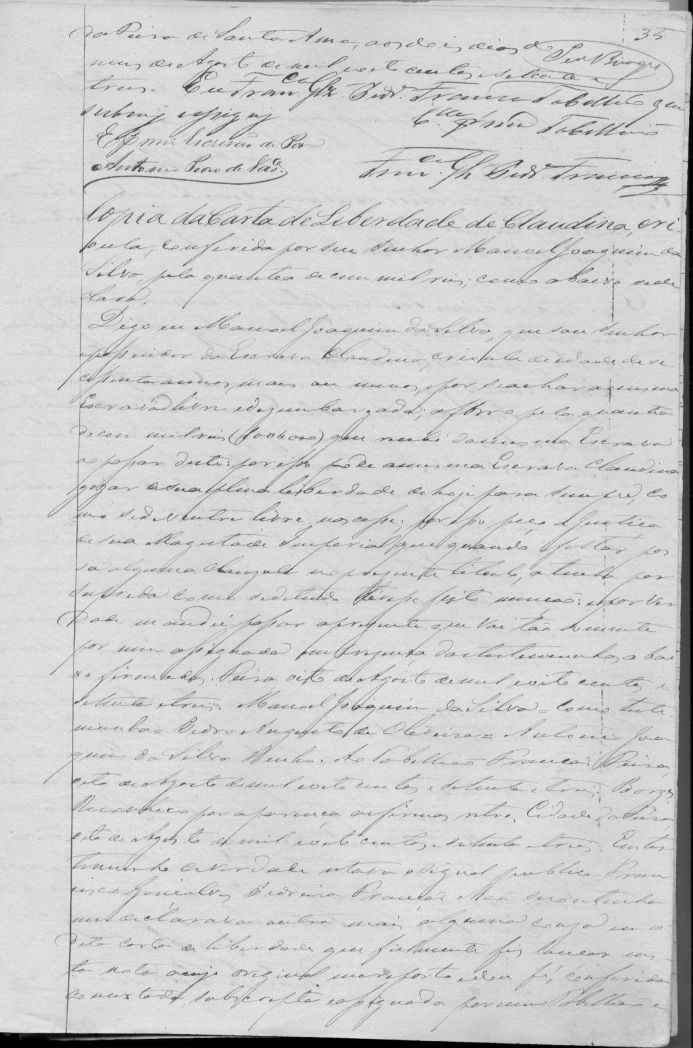 35
da Feira de Santa Anna, aos dois dias do
mes de Agosto de mil oito centos e setenta e
tres. Eu Franco. Glz. Pedr. França Tabellião que
subscrevi e assigno
Tabellião
E por mim Escrivão de Paz
Antonio
Franco. Glz Pedr. França
Copia da Carta de Liberdade de Claudina, cri-
oula, conferida por seu Senhor Manoel Joaquim da
Silva, pela quantia de cem mil reis; como abaixo se de
clara.
Digo eu Manoel Joaquim da Silva, que sou senhor
e possuidor da Escrava Claudina, crioula de idade de se
centa annos, mais ou menos, e por se achar a mesma
Escrava livre e desembargada; a forro pela quantia
de cem mil reis (100$000) que recebi da mesma Escrava
ao passar deste: por isso póde a mesma Escrava Claudina
gozar de sua plena liberdade de hoje para sempre, co
mo se de ventre livre nascesse: por isso peço a Justiça
de sua Magestade Imperial, que quando faltar por
sa alguma clauzula no presente titulo, a tenha por
suprida como se de tudo fizesse menção: e por ver
dade mandei passar a presente que vai tão somente
por mim assignada em presença das testemunhas abai
xo firmadas. Feira oito de Agosto de mil oito centos e
setenta e tres. Manoel Joaquim da Silva = Como teste
munha = Pedro Augusto de Oliveira = Antonio Joa
quim da Silva = Ao Tabellião França: Feira,
oito de Agosto de mil oito centos e setenta e tres: Borges
Reconheço por a firmas retro. Cidade da Feira
oito de Agosto de mil oito centos e setenta e tres. Em tes
timunho de verdade estava o signal publico Fran
cisco Gonçalves Pedreira França. Não se continha
nem declarava outra mais alguma couza em a
dita carta de liberdade que fielmente fiz lançar nes
ta nota a cujo original me reporto e dou fé, conferida
concertada, subscripta e assignada por mim Tabellião e